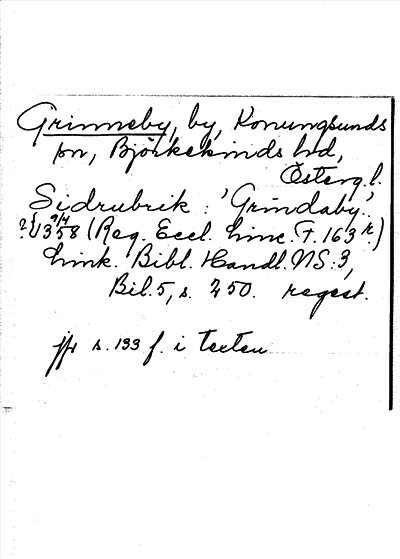 Grinneby, by, Konungsunds
sn, Björkekinds hd,
Östergl.
Sidrubrik: 'Grindaby',
?{ 9/4 1358 (Reg. Eccl. Linc. F. 163 r.)
Link. Bibl. Handl. NS: 3,
Bil. 5, s. 250. regest.
jfr s. 133 f. i texten